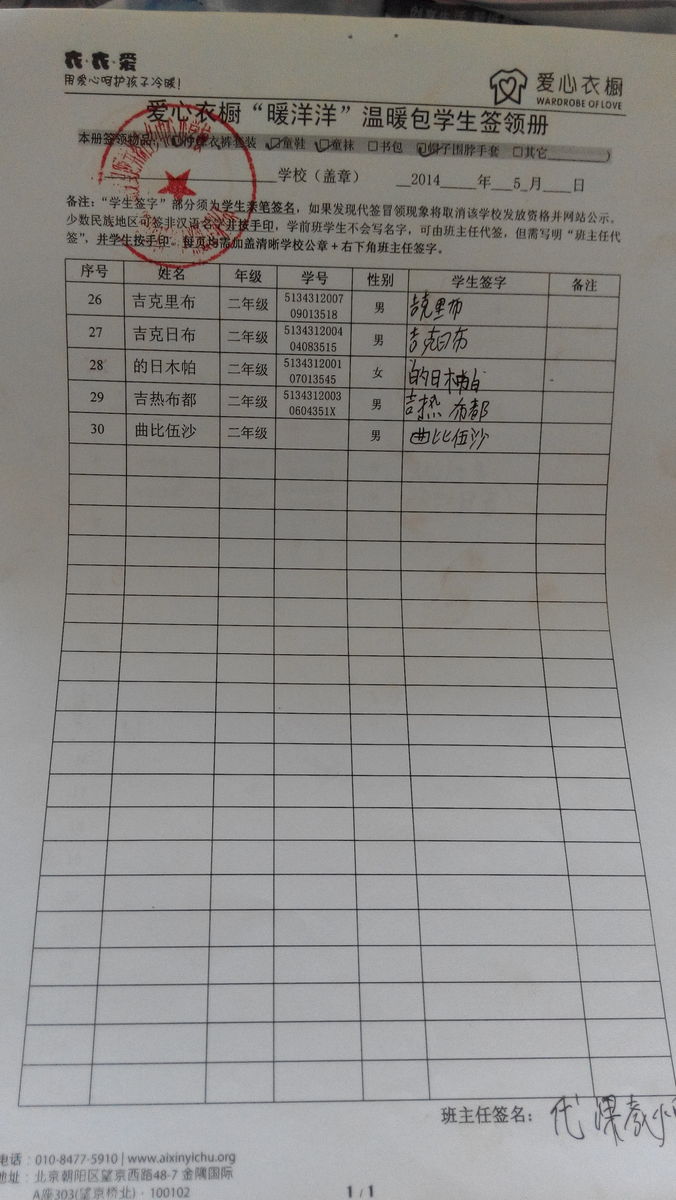 衣·衣·爱
用爱心呵护孩子冷暖!
爱心衣橱
WARDROBE OF LOVE
爱心衣橱“暖洋洋”温暖包学生签领册
本册签领物品:( 衣裤套装 ☑童鞋 ☑童袜 □书包 ☑帽子围脖手套 □其它________)
________学校(盖章) __2014____年__5_月____日
备注:“学生签字”部分须为学生亲笔签名,如果发现代签冒领现象将取消该学校发放资格并网站公示。
少数民族地区可签非汉语名字并按手印,学前班学生不会写名字,可由班主任代签,但需写明“班主任代
签”,并学生按手印。每页均需加盖清晰学校公章+右下角班主任签字。
序号 姓名 年级 学号 性别 学生签字 备注
26 吉克里布 二年级 5134312007 09013518 男 吉克里布
27 吉克日布 二年级 5134312004 04083515 男 吉克日布
28 的日木帕 二年级 5134312001 07013545 女 的日木帕
29 吉热布都 二年级 5134312003 0604351X 男 吉热布都
30 曲比伍沙 二年级 男 曲比伍沙
班主任签名: 代课教师
电话:010-8477-5910 | www.aixinyichu.org
地址:北京朝阳区望京西路48-7 金隅国际
A座303(望京桥北)·100102
1 / 1